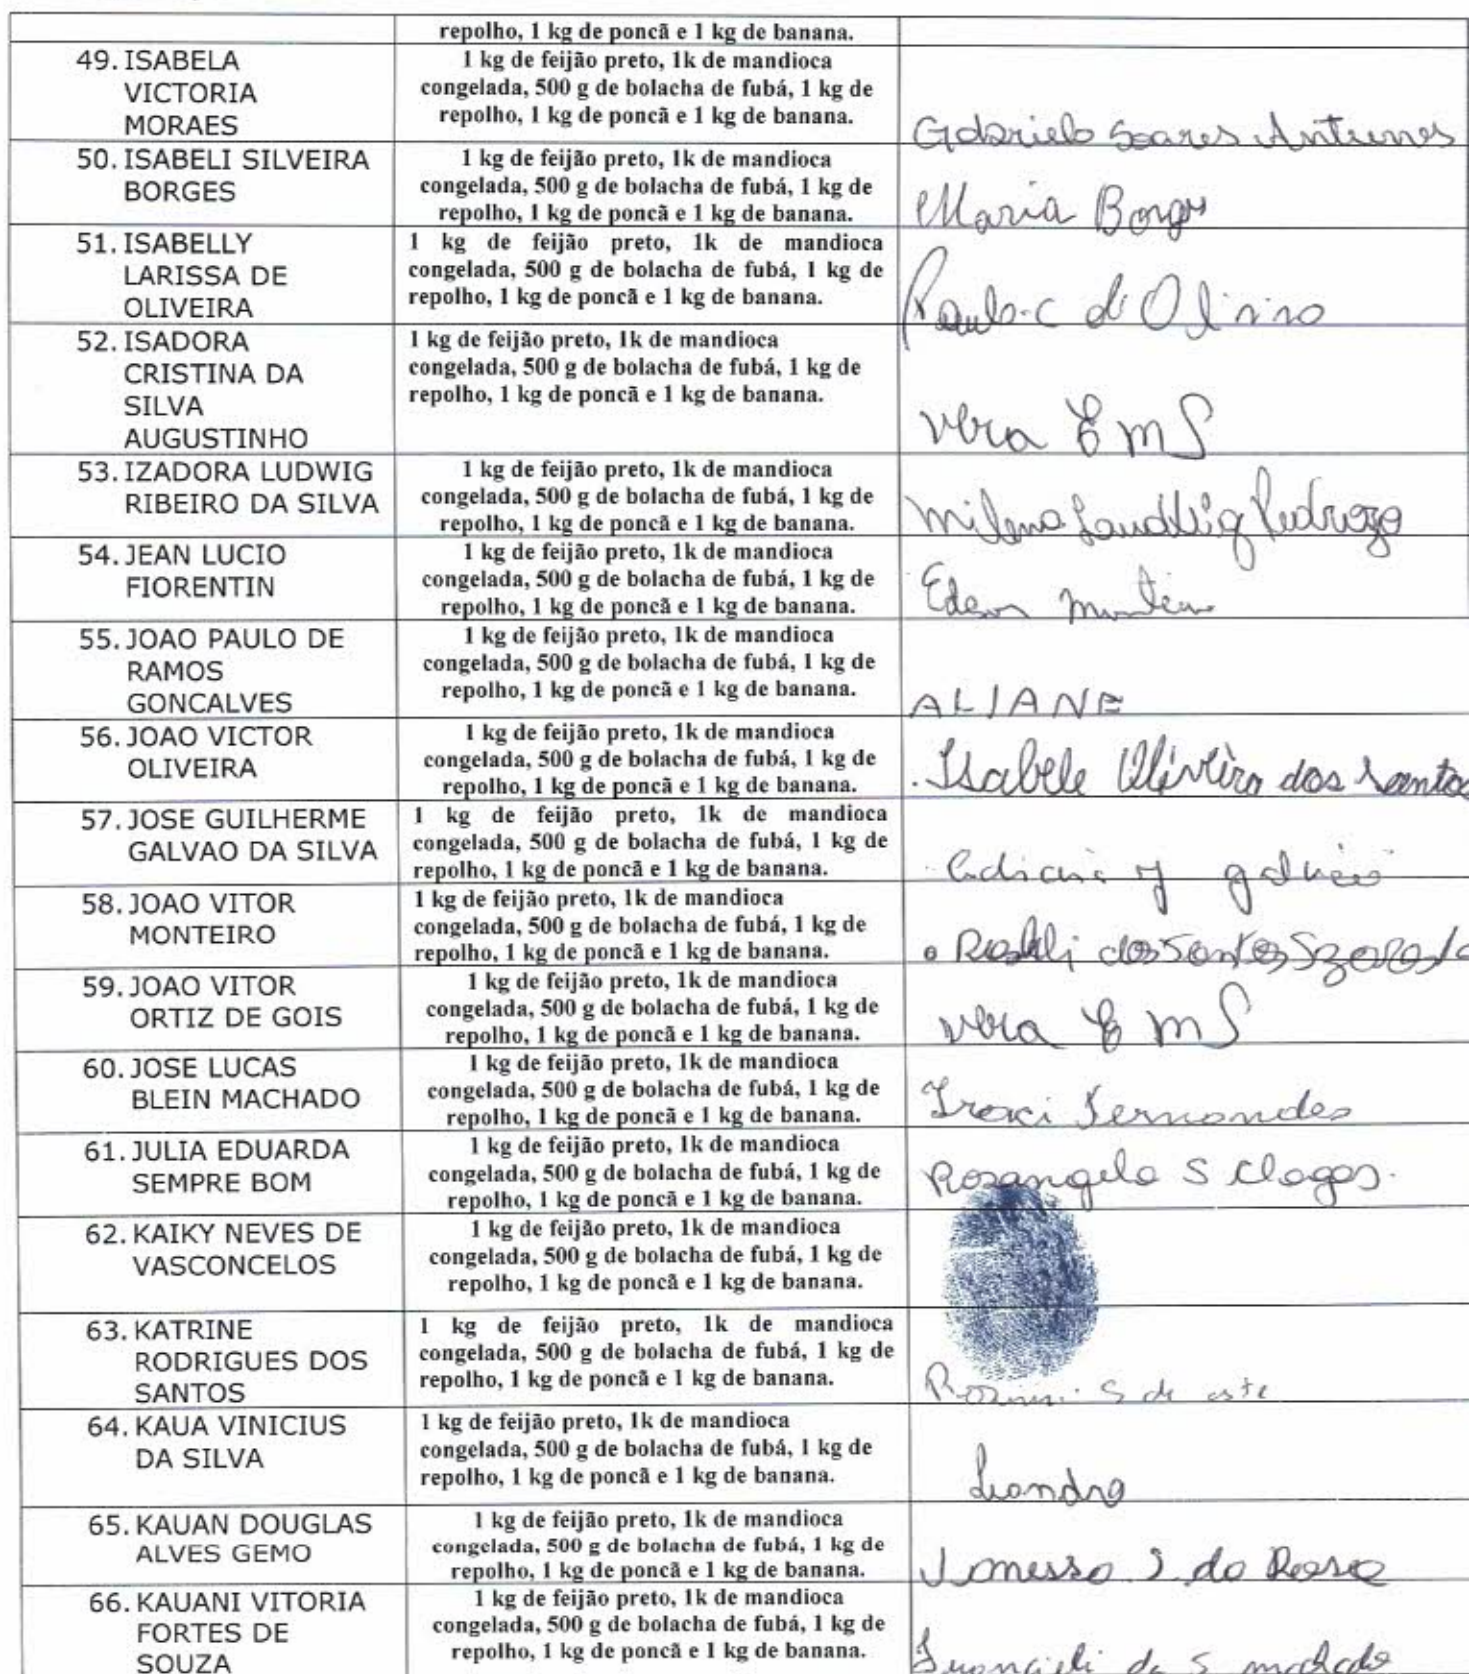 repolho, 1 kg de poncã e 1 kg de banana.
49. ISABELA
VICTORIA
MORAES
1 kg de feijão preto, 1k de mandioca
congelada, 500 g de bolacha de fubá, 1 kg de
repolho, 1 kg de poncã e 1 kg de banana.
Gabriela Soares Antunes
50. ISABELI SILVEIRA
BORGES
1 kg de feijão preto, 1k de mandioca
congelada, 500 g de bolacha de fubá, 1 kg de
repolho, 1 kg de poncã e 1 kg de banana.
Maria Borges
51. ISABELLY
LARISSA DE
OLIVEIRA
1 kg de feijão preto, 1k de mandioca
congelada, 500 g de bolacha de fubá, 1 kg de
repolho, 1 kg de poncã e 1 kg de banana.
52. ISADORA
CRISTINA DA
SILVA
AUGUSTINHO
1 kg de feijão preto, 1k de mandioca
congelada, 500 g de bolacha de fubá, 1 kg de
repolho, 1 kg de poncã e 1 kg de banana.
Vera E m S
53. IZADORA LUDWIG
RIBEIRO DA SILVA
1 kg de feijão preto, 1k de mandioca
congelada, 500 g de bolacha de fubá, 1 kg de
repolho, 1 kg de poncã e 1 kg de banana.
Milena
54. JEAN LUCIO
FIORENTIN
1 kg de feijão preto, 1k de mandioca
congelada, 500 g de bolacha de fubá, 1 kg de
repolho, 1 kg de poncã e 1 kg de banana.
55. JOAO PAULO DE
RAMOS
GONCALVES
1 kg de feijão preto, 1k de mandioca
congelada, 500 g de bolacha de fubá, 1 kg de
repolho, 1 kg de poncã e 1 kg de banana.
ALIANE
56. JOAO VICTOR
OLIVEIRA
1 kg de feijão preto, 1k de mandioca
congelada, 500 g de bolacha de fubá, 1 kg de
repolho, 1 kg de poncã e 1 kg de banana.
Isabele Oliveira dos Santos
57. JOSE GUILHERME
GALVAO DA SILVA
1 kg de feijão preto, 1k de mandioca
congelada, 500 g de bolacha de fubá, 1 kg de
repolho, 1 kg de poncã e 1 kg de banana.
58. JOAO VITOR
MONTEIRO
1 kg de feijão preto, 1k de mandioca
congelada, 500 g de bolacha de fubá, 1 kg de
repolho, 1 kg de poncã e 1 kg de banana.
dos Santos
59. JOAO VITOR
ORTIZ DE GOIS
1 kg de feijão preto, 1k de mandioca
congelada, 500 g de bolacha de fubá, 1 kg de
repolho, 1 kg de poncã e 1 kg de banana.
Vera E m S
60. JOSE LUCAS
BLEIN MACHADO
1 kg de feijão preto, 1k de mandioca
congelada, 500 g de bolacha de fubá, 1 kg de
repolho, 1 kg de poncã e 1 kg de banana.
Iraci Fernandes
61. JULIA EDUARDA
SEMPRE BOM
1 kg de feijão preto, 1k de mandioca
congelada, 500 g de bolacha de fubá, 1 kg de
repolho, 1 kg de poncã e 1 kg de banana.
Rosangela S Chagas.
62. KAIKY NEVES DE
VASCONCELOS
1 kg de feijão preto, 1k de mandioca
congelada, 500 g de bolacha de fubá, 1 kg de
repolho, 1 kg de poncã e 1 kg de banana.
63. KATRINE
RODRIGUES DOS
SANTOS
1 kg de feijão preto, 1k de mandioca
congelada, 500 g de bolacha de fubá, 1 kg de
repolho, 1 kg de poncã e 1 kg de banana.
64. KAUA VINICIUS
DA SILVA
1 kg de feijão preto, 1k de mandioca
congelada, 500 g de bolacha de fubá, 1 kg de
repolho, 1 kg de poncã e 1 kg de banana.
Leandro
65. KAUAN DOUGLAS
ALVES GEMO
1 kg de feijão preto, 1k de mandioca
congelada, 500 g de bolacha de fubá, 1 kg de
repolho, 1 kg de poncã e 1 kg de banana.
66. KAUANI VITORIA
FORTES DE
SOUZA
1 kg de feijão preto, 1k de mandioca
congelada, 500 g de bolacha de fubá, 1 kg de
repolho, 1 kg de poncã e 1 kg de banana.
da S machado